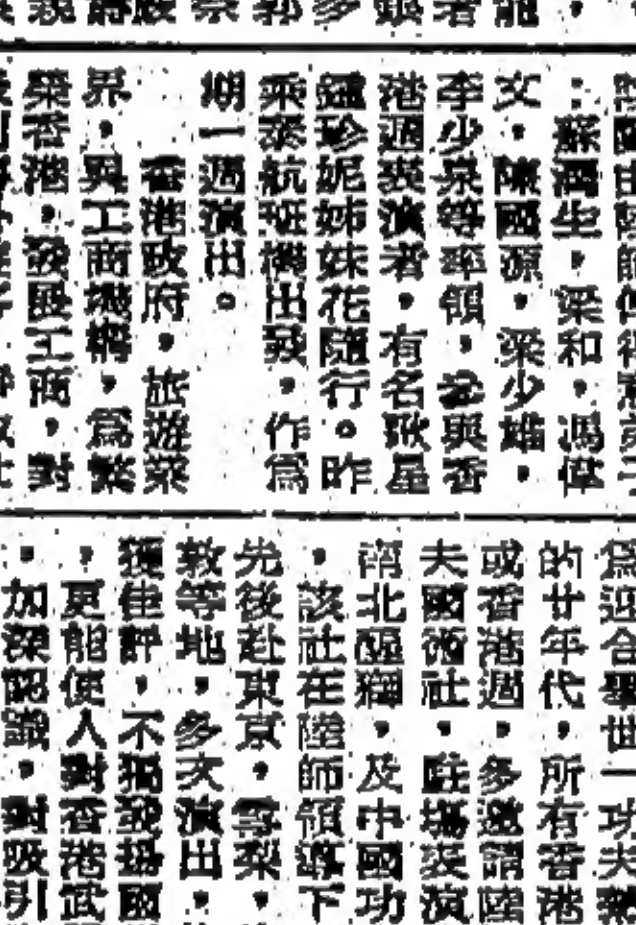 ：蘇潤生，梁和，馮偉
文，陳國源，梁少雄，
李少泉等率領，參與香
港週表演者，有名歌星
鍾珍妮姊妹花隨行。昨
乘泰航班機出發，作爲
期一週演出。
香港政府，旅遊業
界，與工商機構，爲繁
榮香港，發展工商，對
爲迎合舉世一功夫熱
的廿年代，所有香港
或香港週，多邀請陸
夫國術社，蒞場表演
南北醒獅，及中國功
，該社在陸師領導下
先後赴東京，雪梨，
敦等地，多次演出，
獲佳評，不獨發揚國
，更能使人對香港武
，加深認識，對吸引